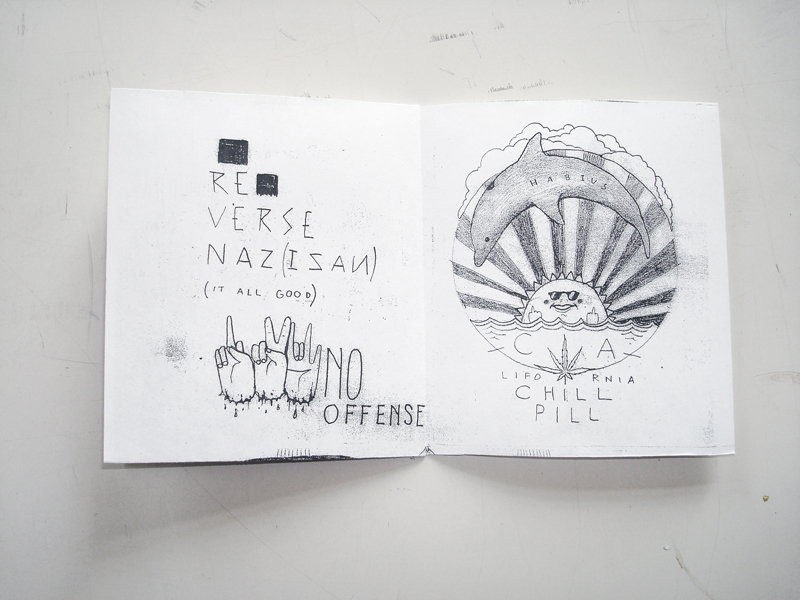 RE
VERSE
NAZ(IZAN)
(IT ALL GOOD)
NO
OFFENSE
HABIUS
C A
LIFO RNIA
CHILL
PILL